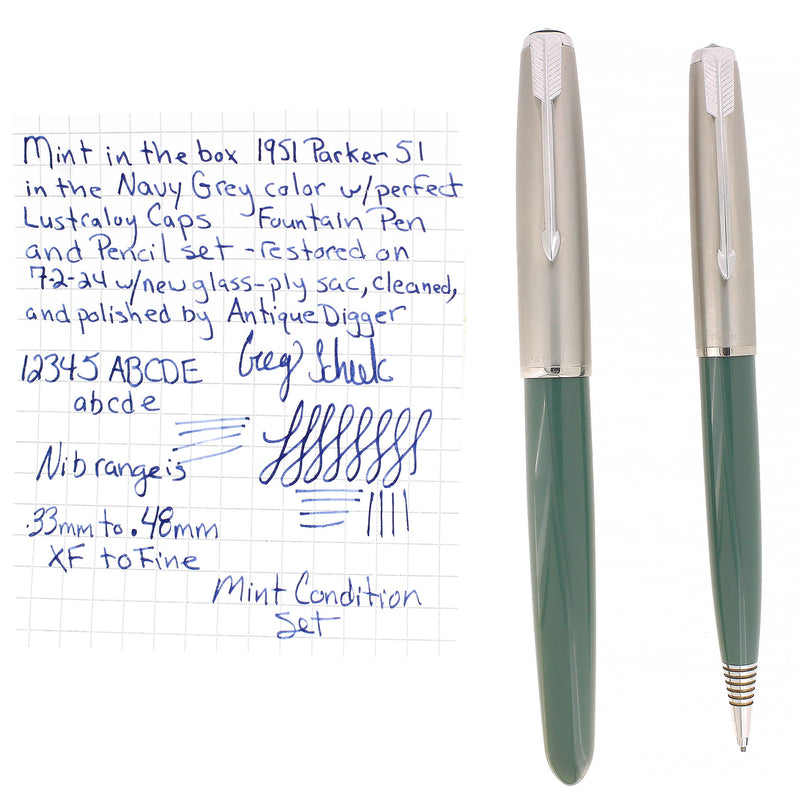 Mint in the box 1951 Parker 51
in the Navy Grey color w/perfect
Lustraloy Caps Fountain Pen
and Pencil set - restored on
7-2-24 w/new glass-ply sac, cleaned,
and polished by Antique Digger
12345 ABCDE
abcde
Greg
Nib range is
.33mm to .48mm
XF to Fine
Mint Condition
Set
PARKER